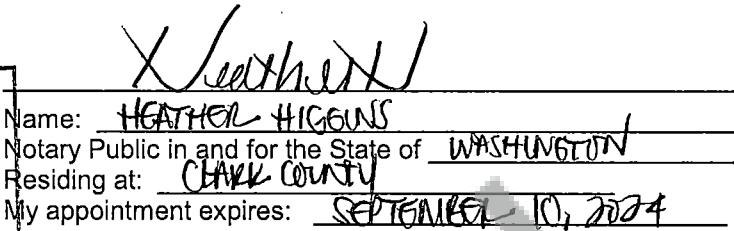 Heather H
Name: HEATHER HIGGINS
Notary Public in and for the State of WASHINGTON
Residing at: CLARK COUNTY
My appointment expires: SEPTEMBER 10, 2024